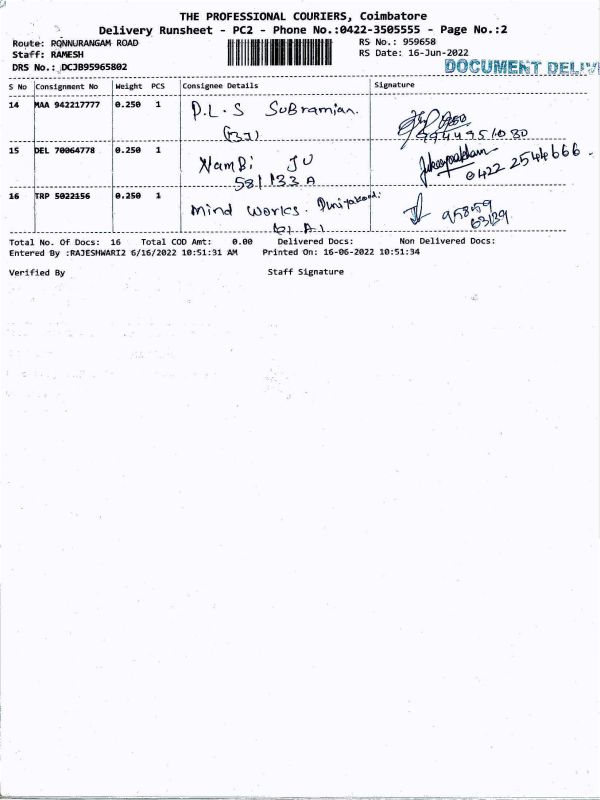 THE PROFESSIONAL COURIERS, Coimbatore
Delivery Runsheet - PC2 - Phone No.:0422-3505555 - Page No.:2
Route: PONNURANGAM ROAD
RS No.: 959658
Staff: RAMESH
RS Date: 16-Jun-2022
DRS No.: DCJB95965802
DOCUMENT DELIV
S No Consignment No Weight PCS Consignee Details Signature
14 MAA 942217777 0.250 1 P.L.S SuBramian.
15 DEL 70064778 0.250 1 NamBi JU
581/33 A 0422 2544666
16 TRP 5022156 0.250 1 Mind works.
95859
63139
Total No. Of Docs: 16 Total COD Amt: 0.00 Delivered Docs: Non Delivered Docs:
Entered By :RAJESHWARI2 6/16/2022 10:51:31 AM Printed On: 16-06-2022 10:51:34
Verified By Staff Signature